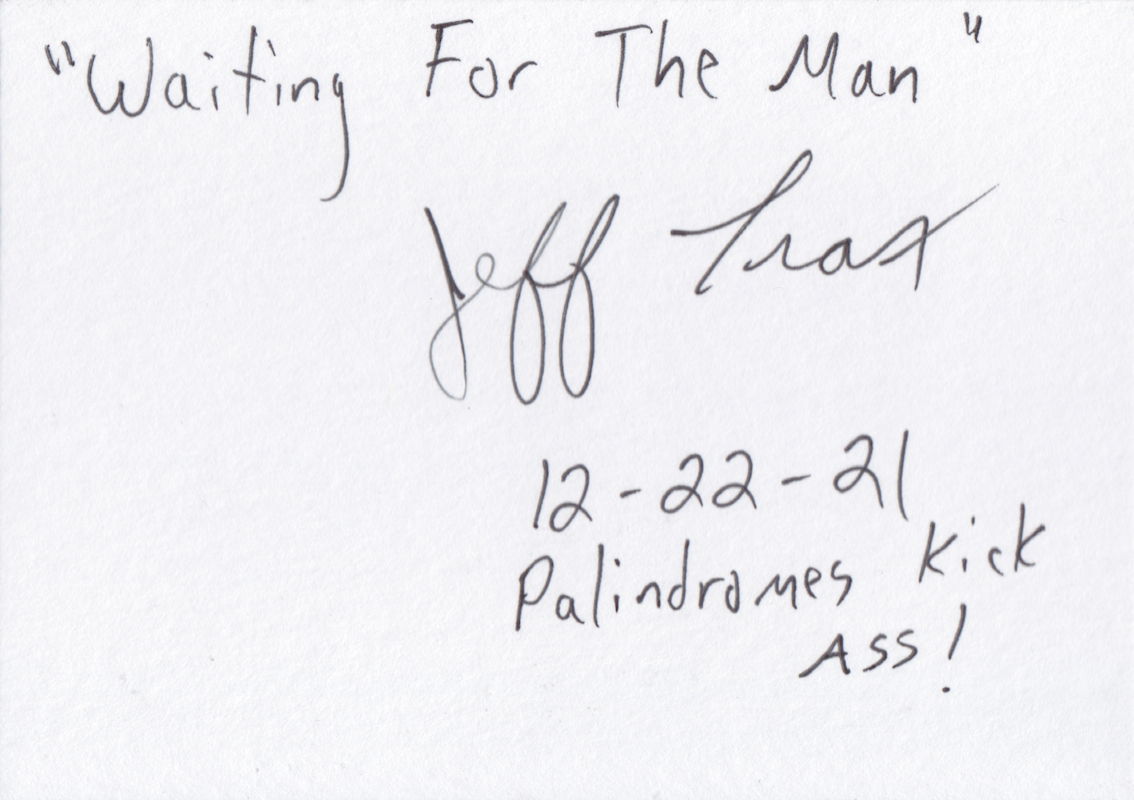 "Waiting For The Man"
Jeff Trax
12-22-21
Palindromes Kick
Ass!